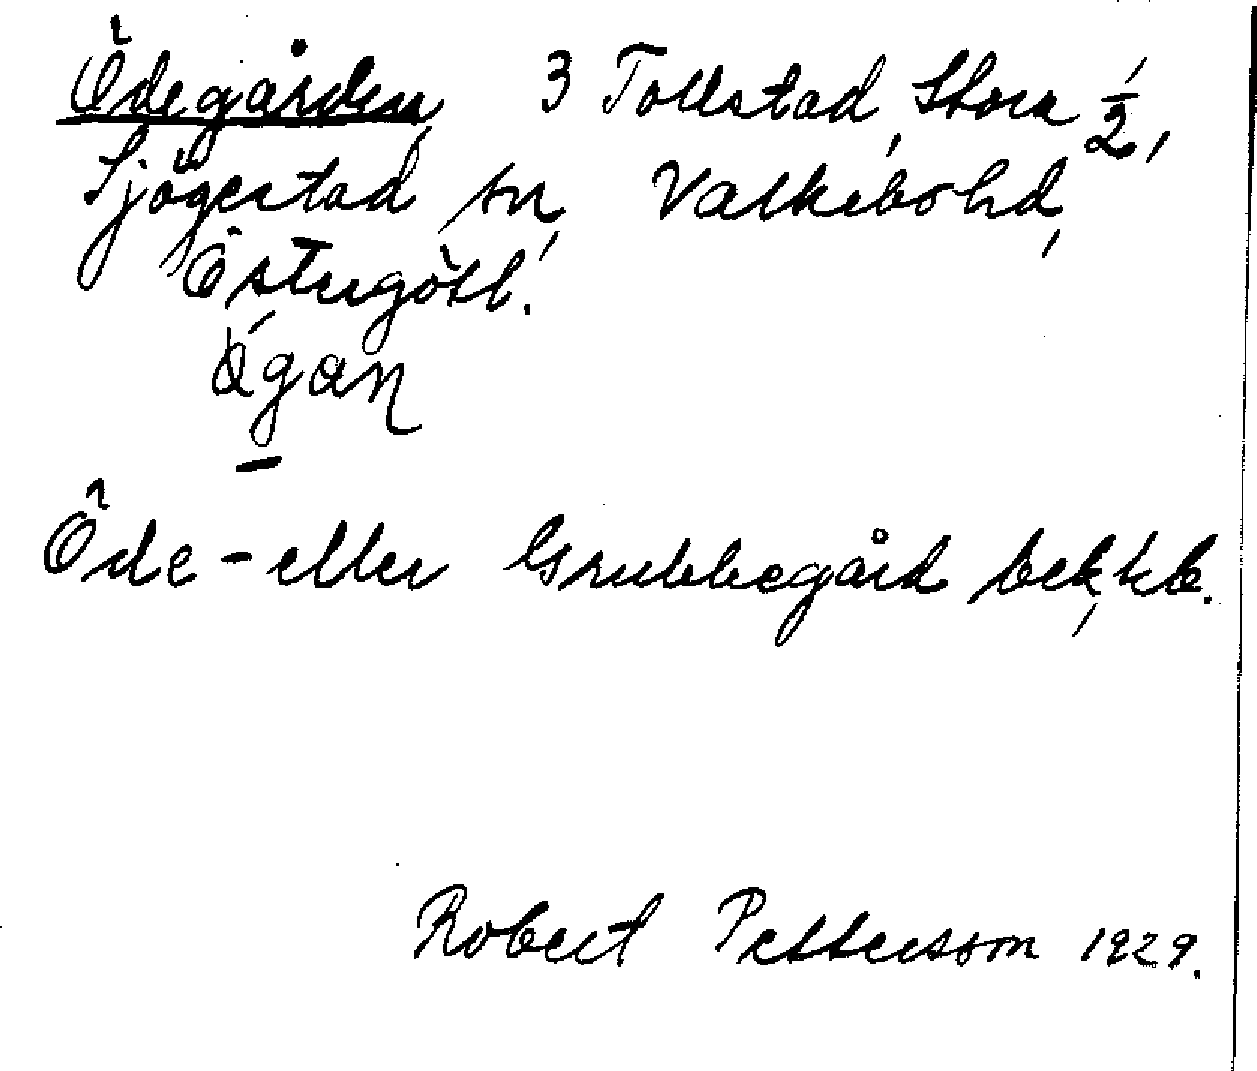 Ödegården, 3 Tollstad, Stora ½,
Sjögestad sn, Valkebo hd,
Östergötl.
Ägan
Öde- eller Grubbegård bek,kb.
Robert Pettersson 1929.